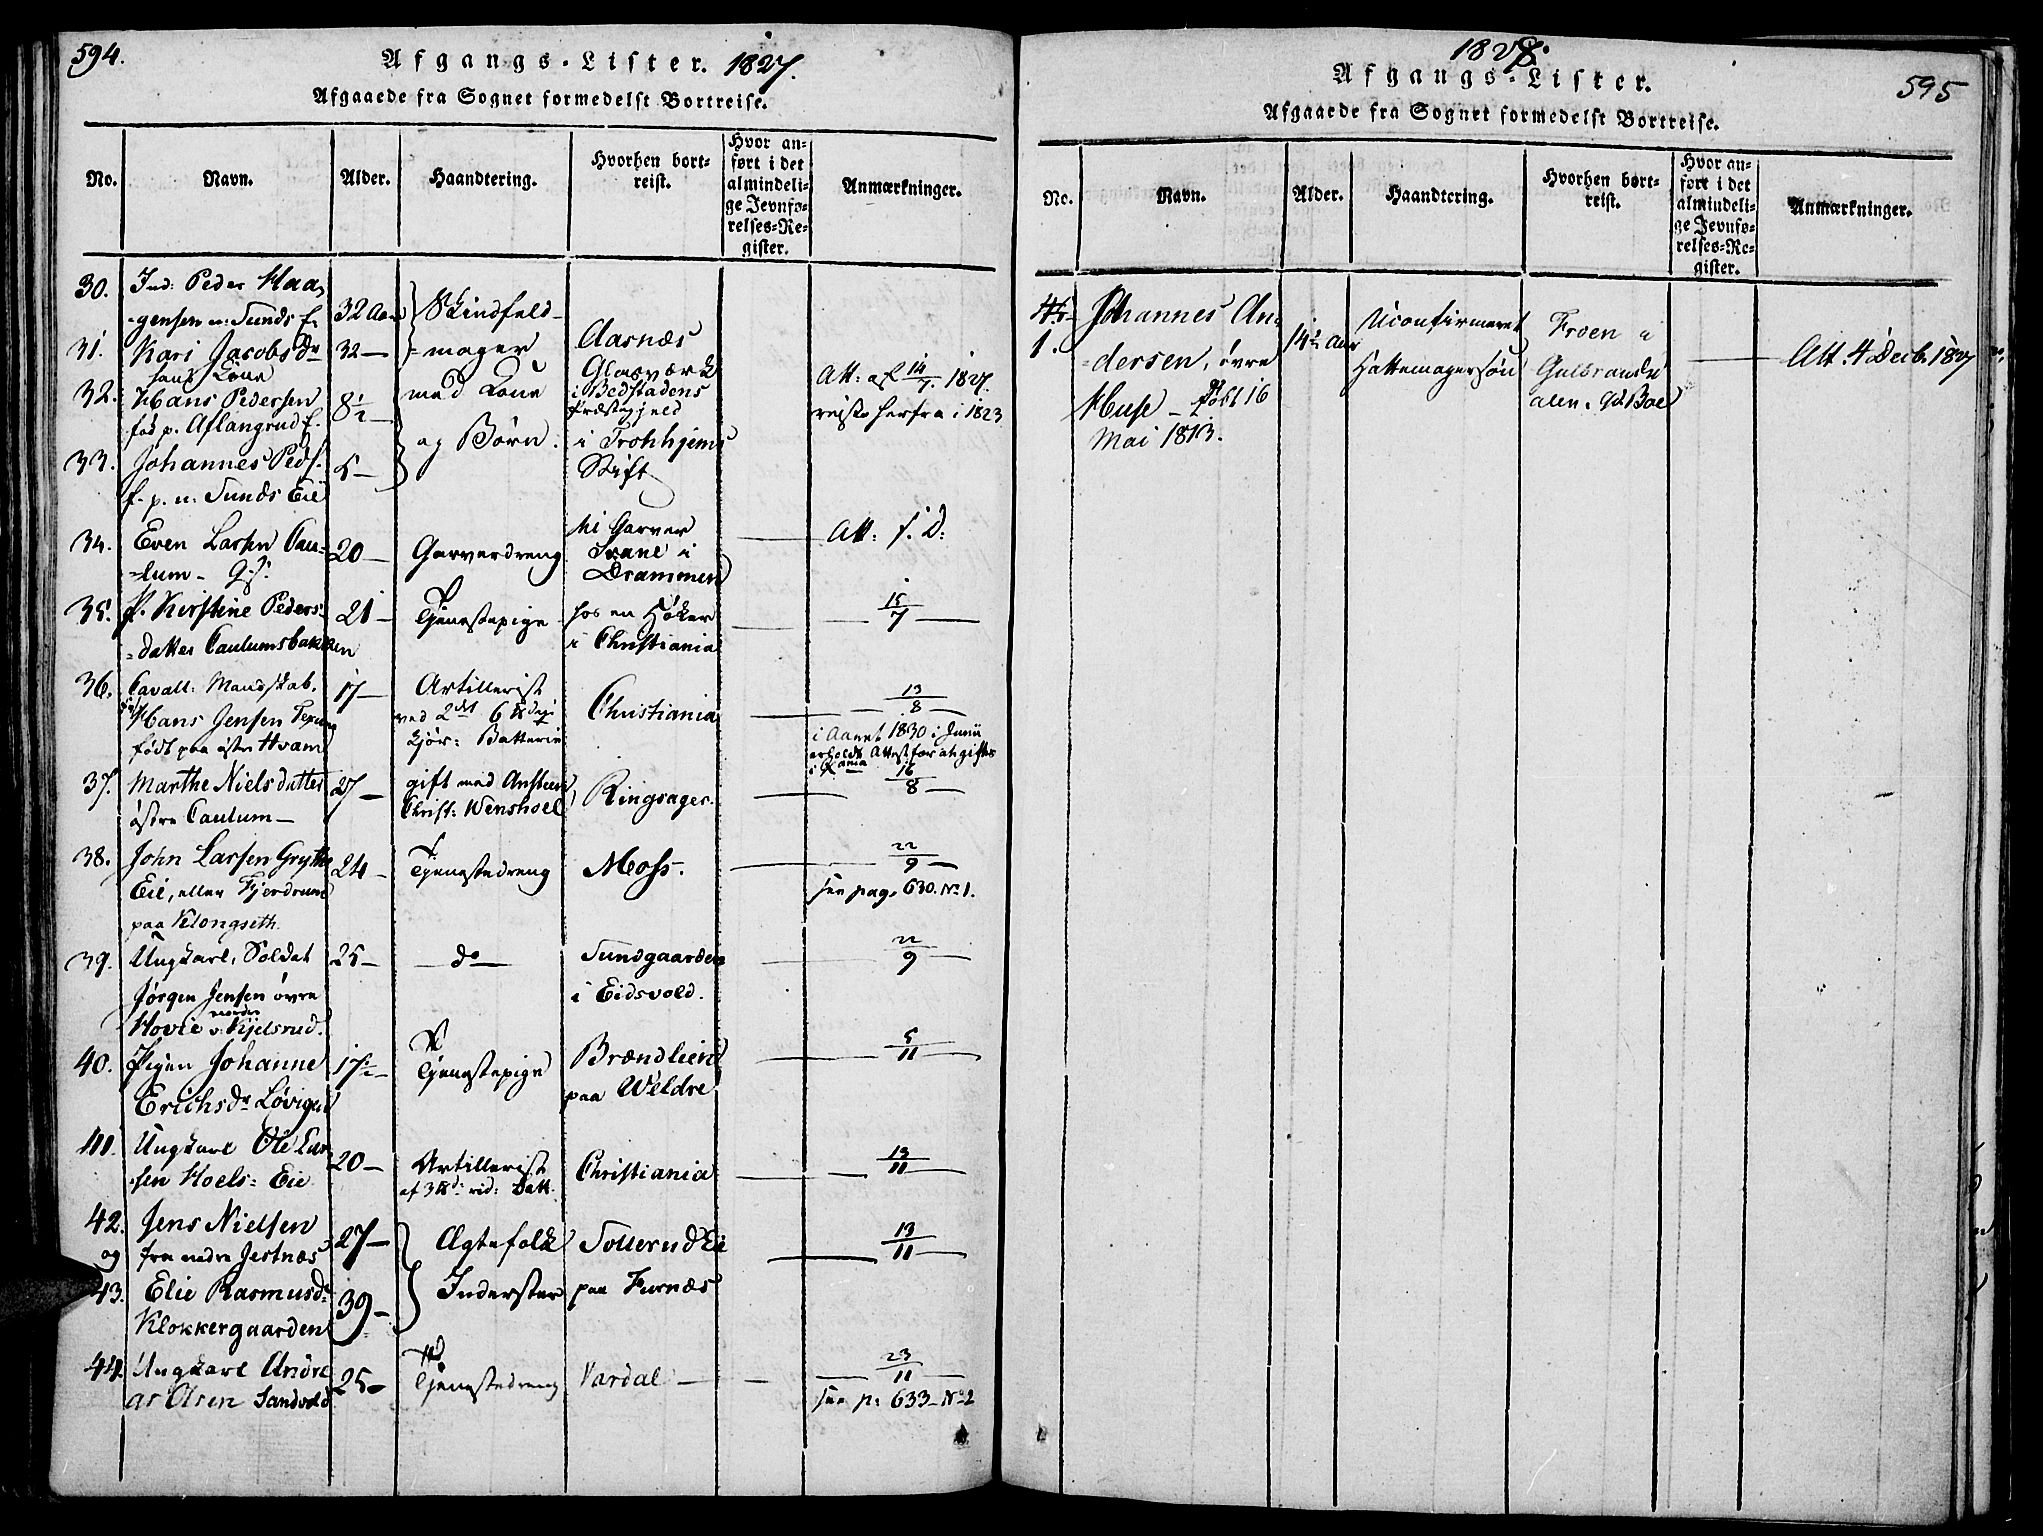 594.
Afgangs-Lister. 1827.
Afgaaede fra Sognet formedelst Bortreise.
No.
Navn.
Alder.
Haandtering.
Hvorhen bort-
reist.
Hvor an-
ført i det
almindeli-
ge Jevnfø-
relses-Re-
gister.
Anmærkninger.
30.
Ind: Peder Haa-
gensen n: Sunds E.
32 Aar
Skindfeld-
31.
Kari Jacobsdr
hans Kone
32 —
mager
med Kone
og Børn.
Aarnæs
Glasværk
i Bedstadens
Præstegjeld
i Trohhjems
Stift
Att: af 14/7. 1827.
reiste herfra i 1823
32.
Hans Pedersen
fød p. Aflangrud E.
8 1/2
33.
Johannes Peds.
f. p. n: Sunds Eie
5 —
34.
Even Larsen Cau-
lum
20 —
Garverdreng
hi Garver
i
Drammen
Att: s. D:
35.
P. Kirstine Peders-
datter Caulumsbakken
21 —
Tjenestepige
hos en Høker
i Christiania
15/7
36.
Cavall: Mandskab.
Hans Jensen
født paa østre Hvam
17 —
Artillerist
ved 2det 6
kjør: Batterie
Christiania
13/8
i Aaret 1830 i Junii
erholdt Attest for at giftes
i Xania
37.
Marthe Nielsdatter
østre Caulum —
27 —
gift med
Christ: Wenshoel
Ringsager.
16/8
38.
John Larsen Grythe
Eie, eller Fjerdrum
paa Klongseth.
24 —
Tjenestedreng
Moss.
22/9
see pag. 630. No 1.
39.
Ungkarl, Soldat
Jørgen Jensen øvre
Hovie v: nordre Kjelsrud.
25 —
do
Sundgaarden
i Eidsvold.
22/9
40.
Pigen Johanne
Erichsdr
17 1/2 —
Tjenestepige
Brændlien
paa Weldre
5/11
41.
Ungkarl Ole Lar-
sen Hoels= Eie
20 —
Artillerist
af 3 rid: Batt.
Christiania
13/11
42.
og
Jens Nielsen
fra nedre Jestnæs
27 —
Ægtefolk
Sollerud Ei
13/11
43.
Elie Rasmusdr
Klokkergaarden
39 —
Inderster
paa Furnæs
44.
Ungkarl Andre
as Olsen Sandvold
25 —
Tjenestedreng
Vardal —
23/11
see p: 633 No 2
595
1828.
Afgangs-Lister.
Afgaaede fra Sognet formedelst Bortreise.
No.
Navn.
Alder.
Haandtering.
Hvorhen bort-
reist.
Hvor an-
ført i det
almindeli-
ge Jevnfø-
relses-Re-
gister.
Anmærkninger.
1.
Johannes An-
dersen, øvre
Huse — født 16
Mai 1813.
14 1/2 Aar
Uconfirmeret
Hattemagersøn
Froen i
Gulbrandsd
alen.
Att. 4 Decb. 1827